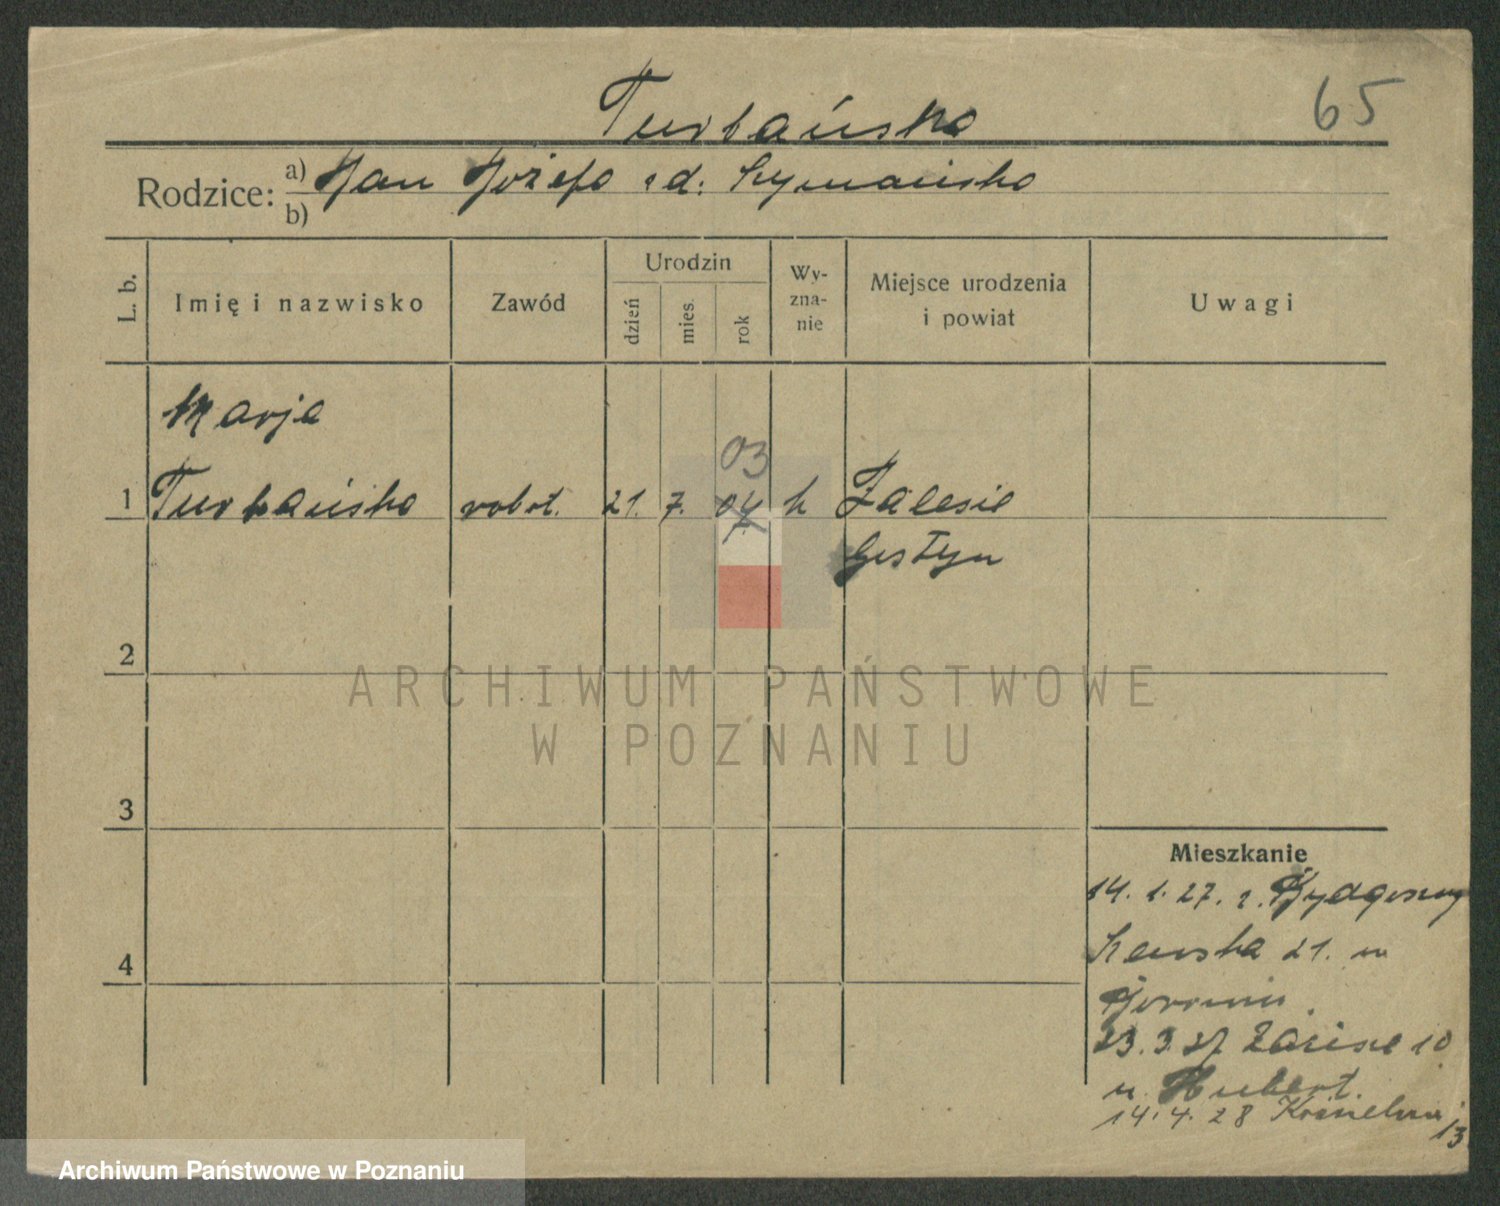 65
Turbańska
Rodzice: a) Jan Józefa z d. Szymańska
b)
L. b. Imię i nazwisko Zawód Urodzin dzień mies. rok Wy-zna-nie Miejsce urodzenia i powiat Uwagi
Marja
03
1 Turbańska robot. 21. 7. 04 k Zalesie
Gostyn
2
ARCHIWUM PAŃSTWOWE
W POZNANIU
3
Mieszkanie
14. 1. 27. z. Bydgoszczy
21. u
4
23. 3. 27 10
u. Hubert.
14. 4. 28 13
Archiwum Państwowe w Poznaniu